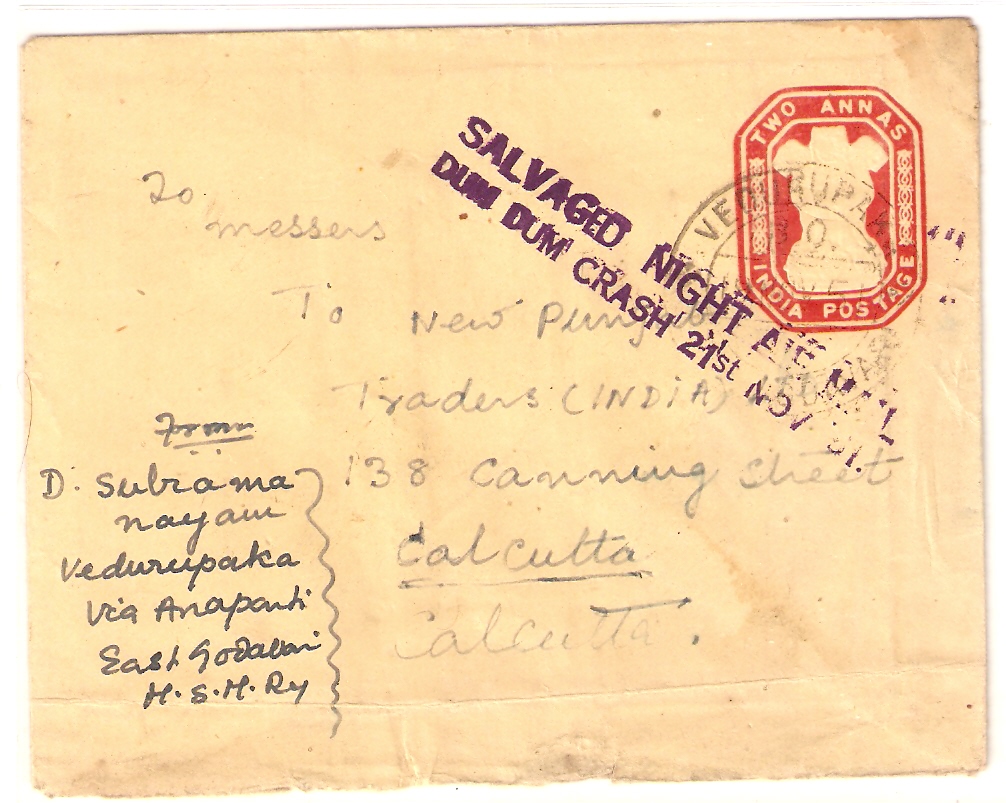 TWO ANNAS
INDIA POSTAGE
VEDURUPAKA
SALVAGED NIGHT AIR MAIL
DUM DUM CRASH 21st NOV 51.
To
messers
To New Punjab
Traders (INDIA)
138 Canning Street
Calcutta
Calcutta.
From
D. Subrama
nayam
Vedurupaka
Via Anaparti
East Godavari
M.S.M.Ry